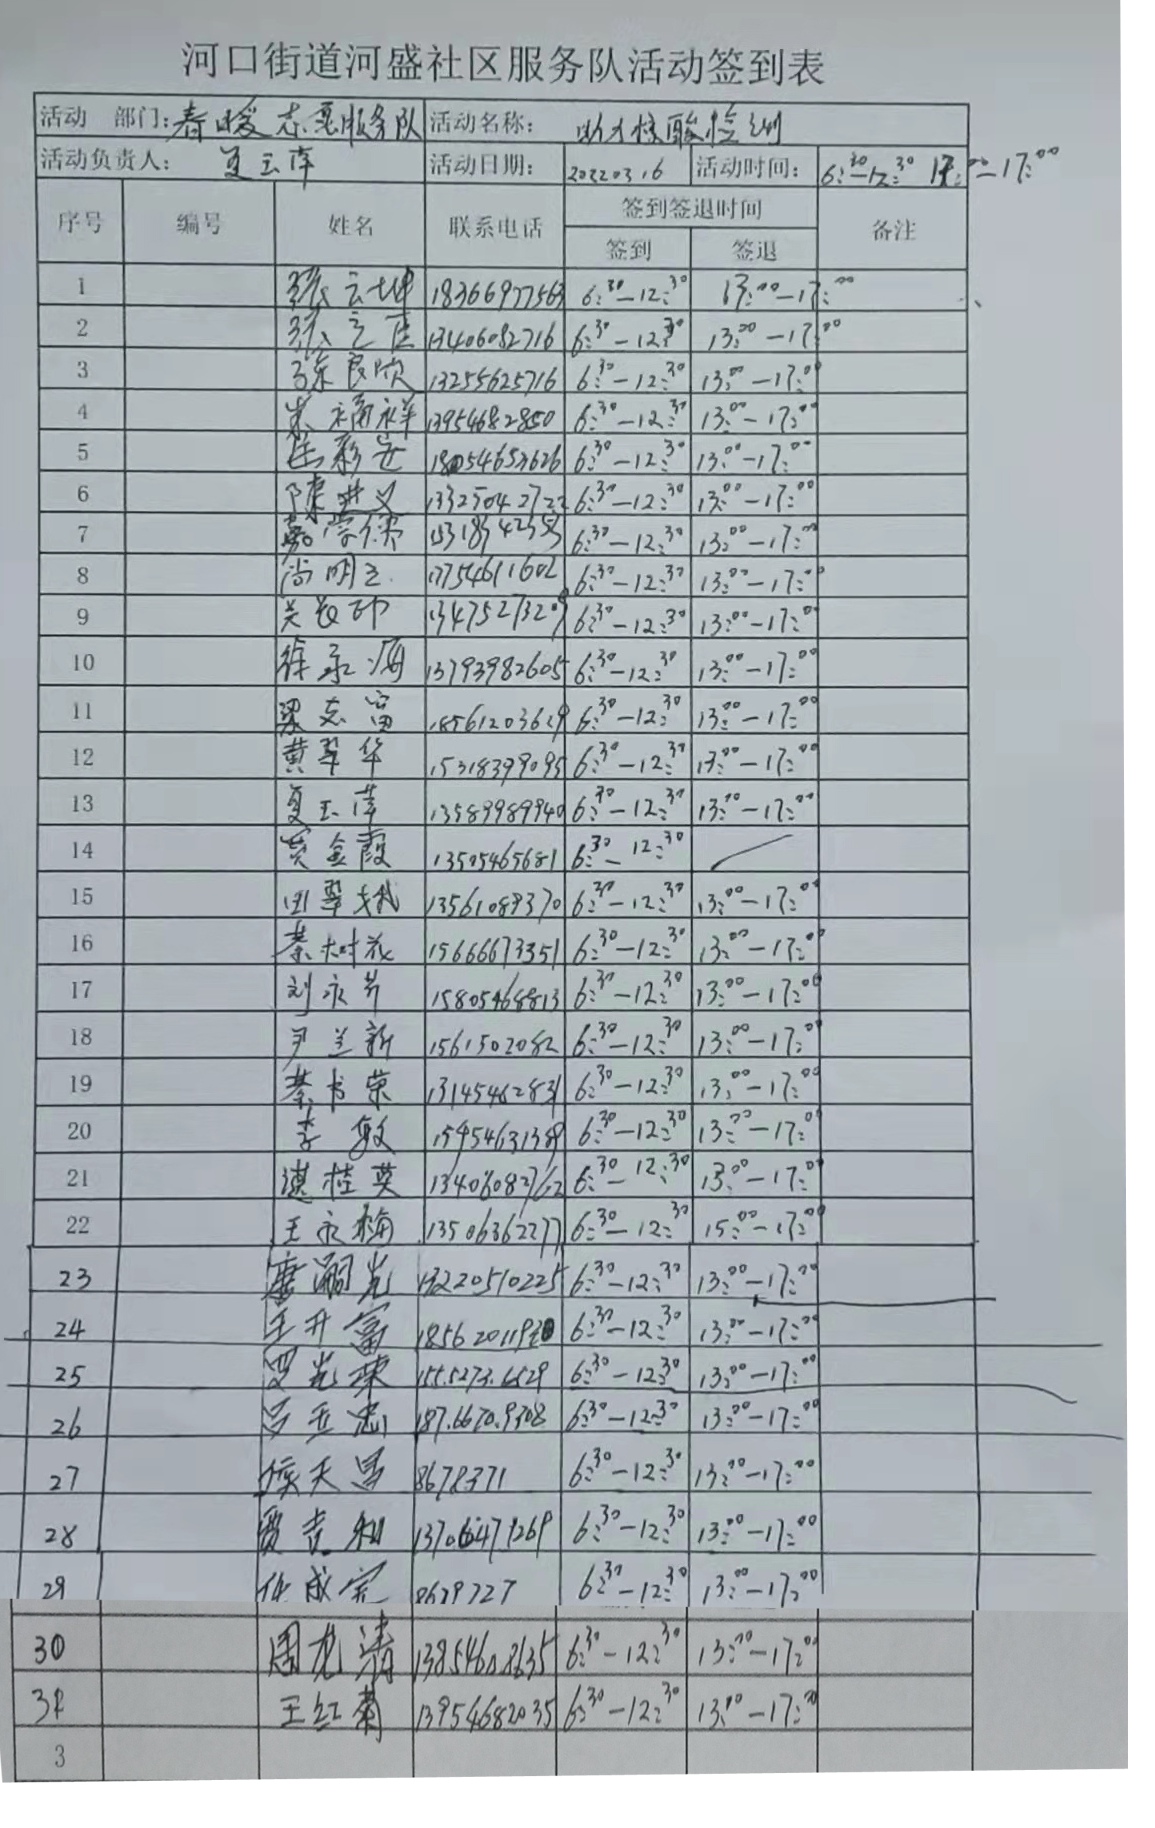 河口街道河盛社区服务队活动签到表
活动 部门: 春暖志愿服务队 活动名称: 助力核酸检测
活动负责人: 夏玉萍 活动日期: 2022.03.6 活动时间: 6:30-12:30 13:00-17:00
序号 编号 姓名 联系电话 签到签退时间 备注
签到 签退
1 张云坤 18366977563 6:30-12:30 13:00-17:00
2 张 13406082716 6:30-12:30 13:00-17:00
3 徐良欣 13255625716 6:30-12:30 13:00-17:00
4 朱福祥 13954682850 6:30-12:30 13:00-17:00
5 18054653626 6:30-12:30 13:00-17:00
6 陈进义 6:30-12:30 13:00-17:00
7 6:30-12:30 13:00-17:00
8 尚明 17754611602 6:30-12:30 13:00-17:00
9 6:30-12:30 13:00-17:00
10 徐永海 13793982605 6:30-12:30 13:00-17:00
11 梁志富 18561203629 6:30-12:30 13:00-17:00
12 黄翠华 15318399095 6:30-12:30 13:00-17:00
13 夏玉萍 13589989940 6:30-12:30 13:00-17:00
14 贾金霞 13505465681 6:30-12:30
15 田翠娥 13561089370 6:30-12:30 13:00-17:00
16 綦树花 15666673351 6:30-12:30 13:00-17:00
17 刘永芳 15805468813 6:30-12:30 13:00-17:00
18 尹兰新 1561502082 6:30-12:30 13:00-17:00
19 綦书荣 13145462831 6:30-12:30 13:00-17:00
20 李敏 15954631389 6:30-12:30 13:00-17:00
21 桂英 13406082762 6:30-12:30 13:00-17:00
22 王永梅 13506362277 6:30-12:30 15:00-17:00
23 光 13220510225 6:30-12:30 13:00-17:00
24 王升富 6:30-12:30 13:00-17:00
25 罗光荣 155.5273.6529 6:30-12:30 13:00-17:00
26 187.6670.9308 6:30-12:30 13:00-17:00
27 侯天 8678371 6:30-12:30 13:00-17:00
28 贾吉和 6:30-12:30 13:00-17:00
29 任成 8639727 6:30-12:30 13:00-17:00
30 周龙清 13854608635 6:30-12:30 13:00-17:00
31 王红菊 13954682035 6:30-12:30 13:00-17:00
3